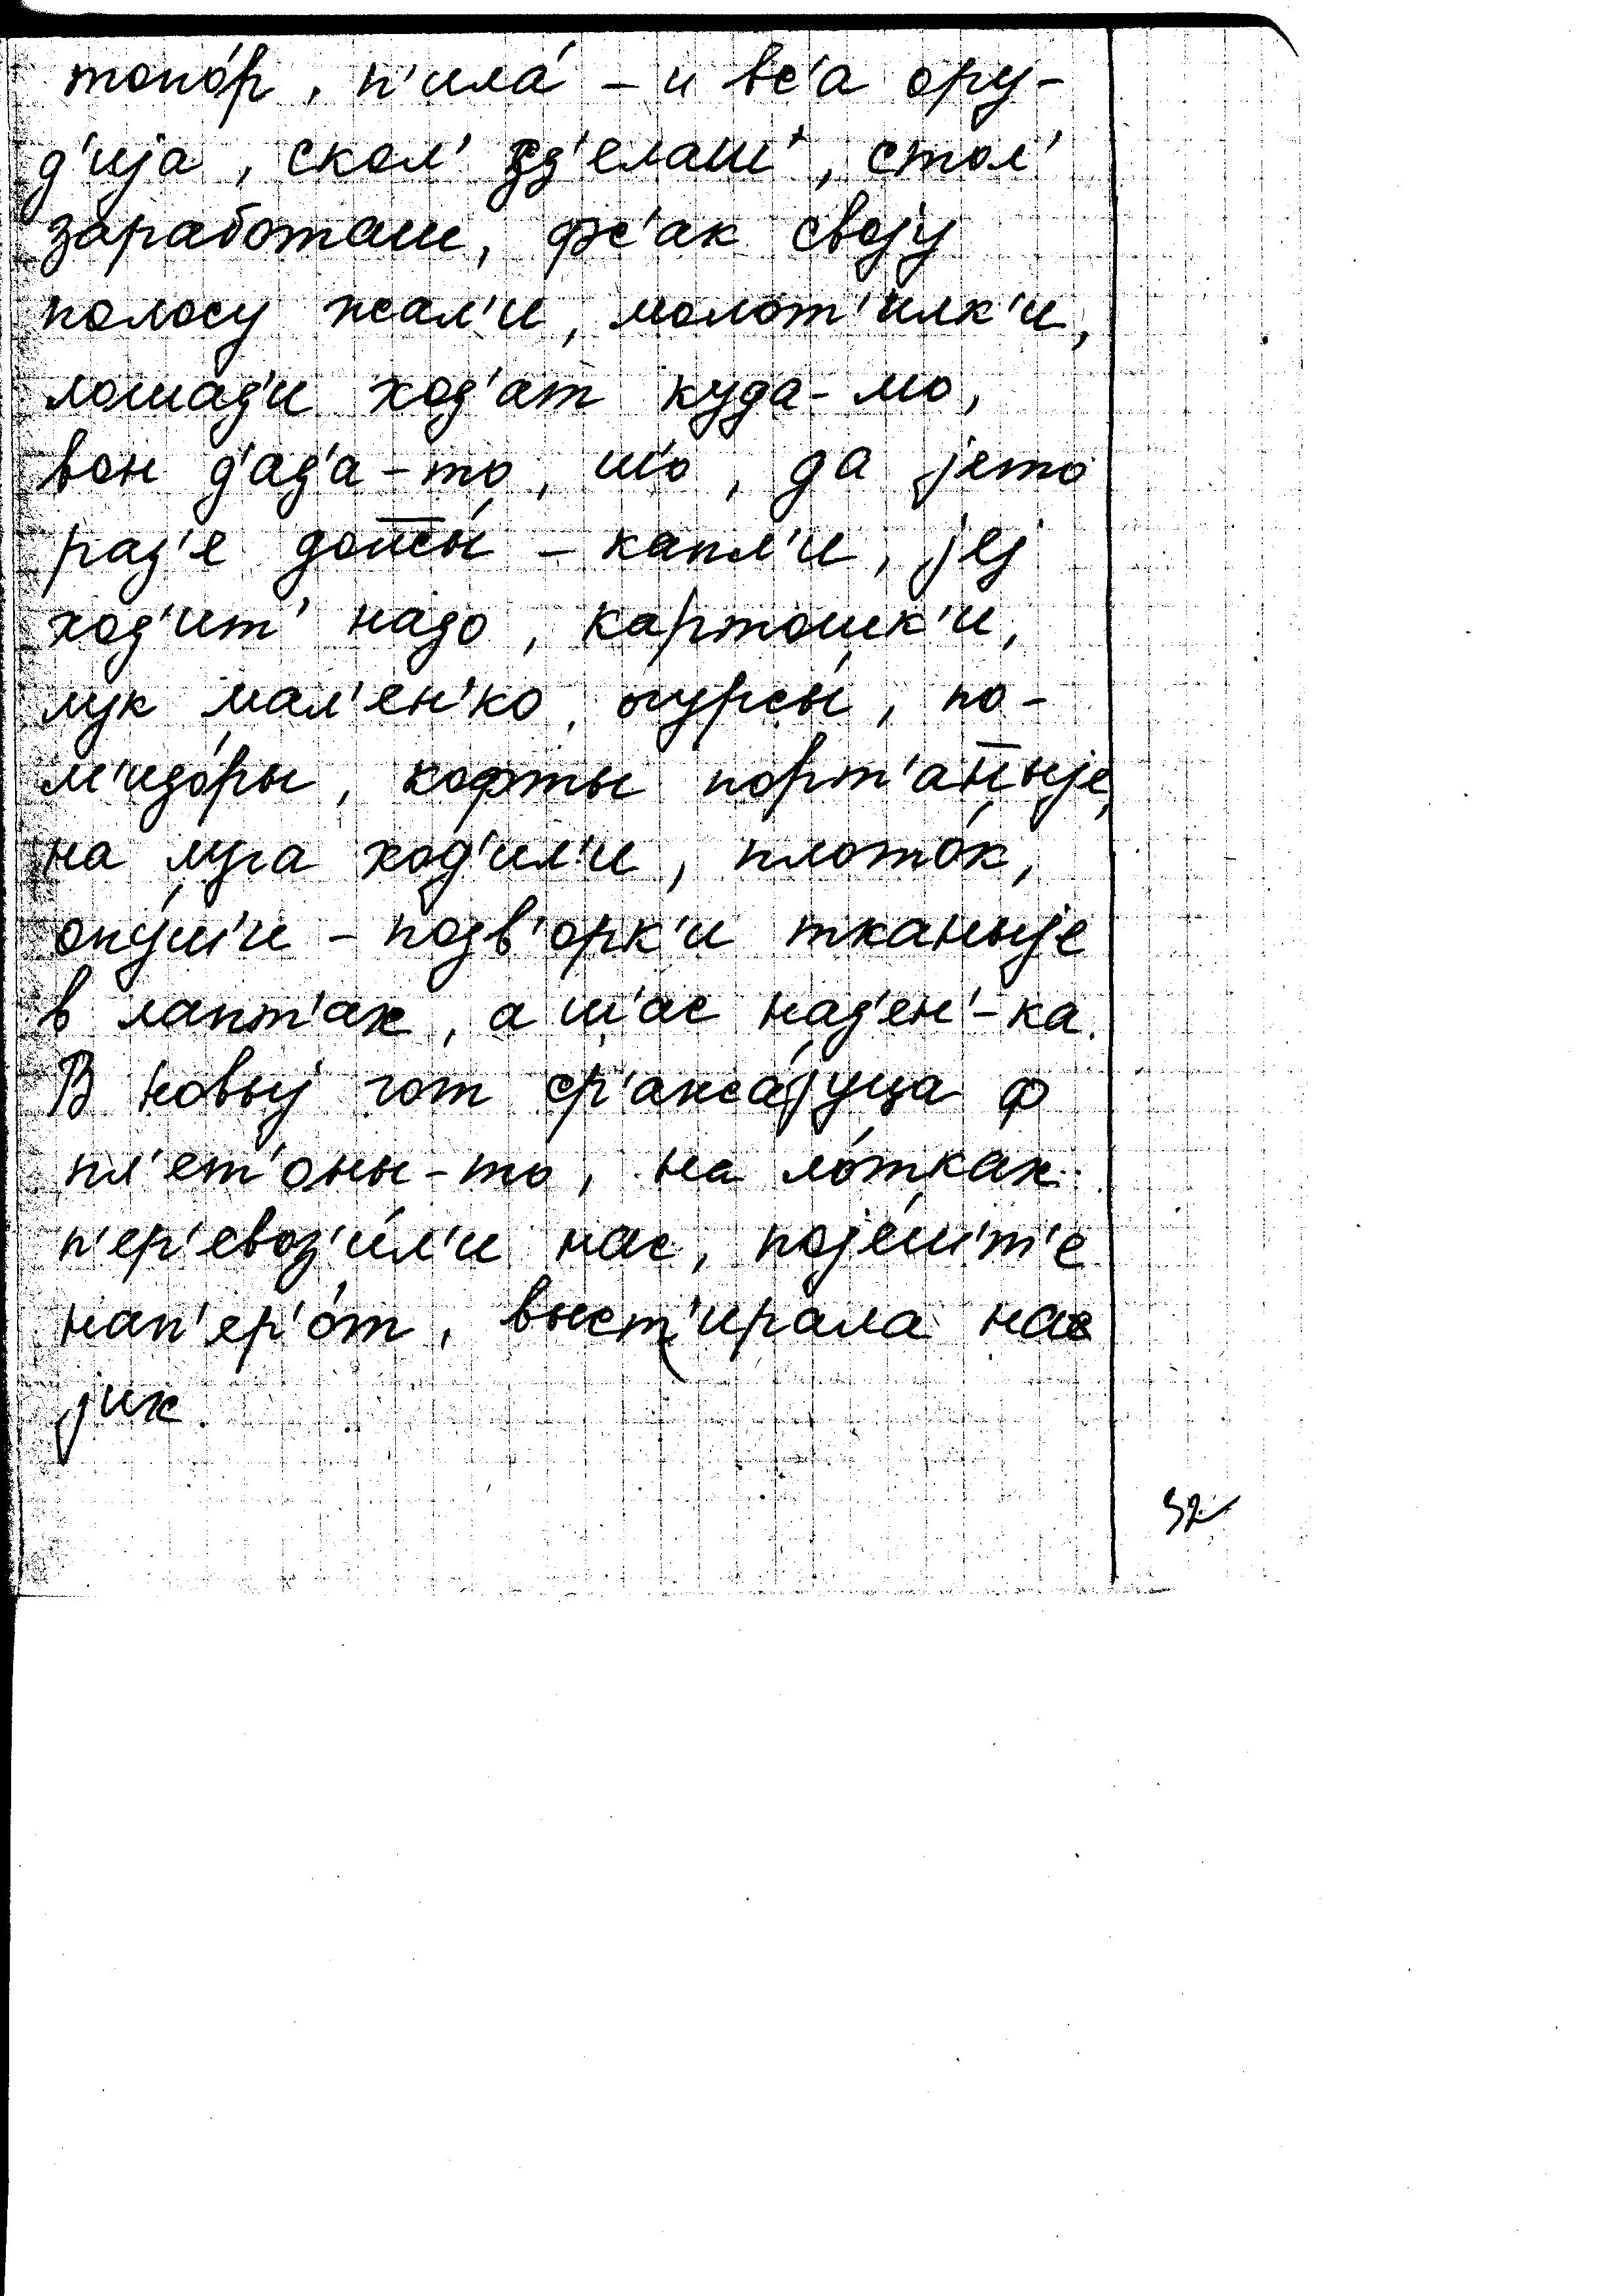 топо́р, п'ила́ – и вс'а ору-
д'ија, скол' зд'елаш', стол'
заработаш, фс'ак своју
полосу жал'и, молот'илк'и,
лошад'и ход'ат куда-мо,
вон д'ад'а-то, ш'о, да јето
раз'е – капл'и, јеј
ход'ит' надо, картошк'и,
лук мал'ен'ко, огурсы́, по-
м'идо́ры, кофты порт'аныје,
на луга ход'ил'и, плото́к,
опуш'и – подв'орк'и тканыје
в лапт'ах, а ш'ас над'ен'-ка.
В новыј гот ср'ажа́јуца ф
пл'ет'оны-то, на ло́тках
п'ер'евоз'и́л'и нас, појеш'т'е
нап'ер'о́т, выст'ирала нас
јих.